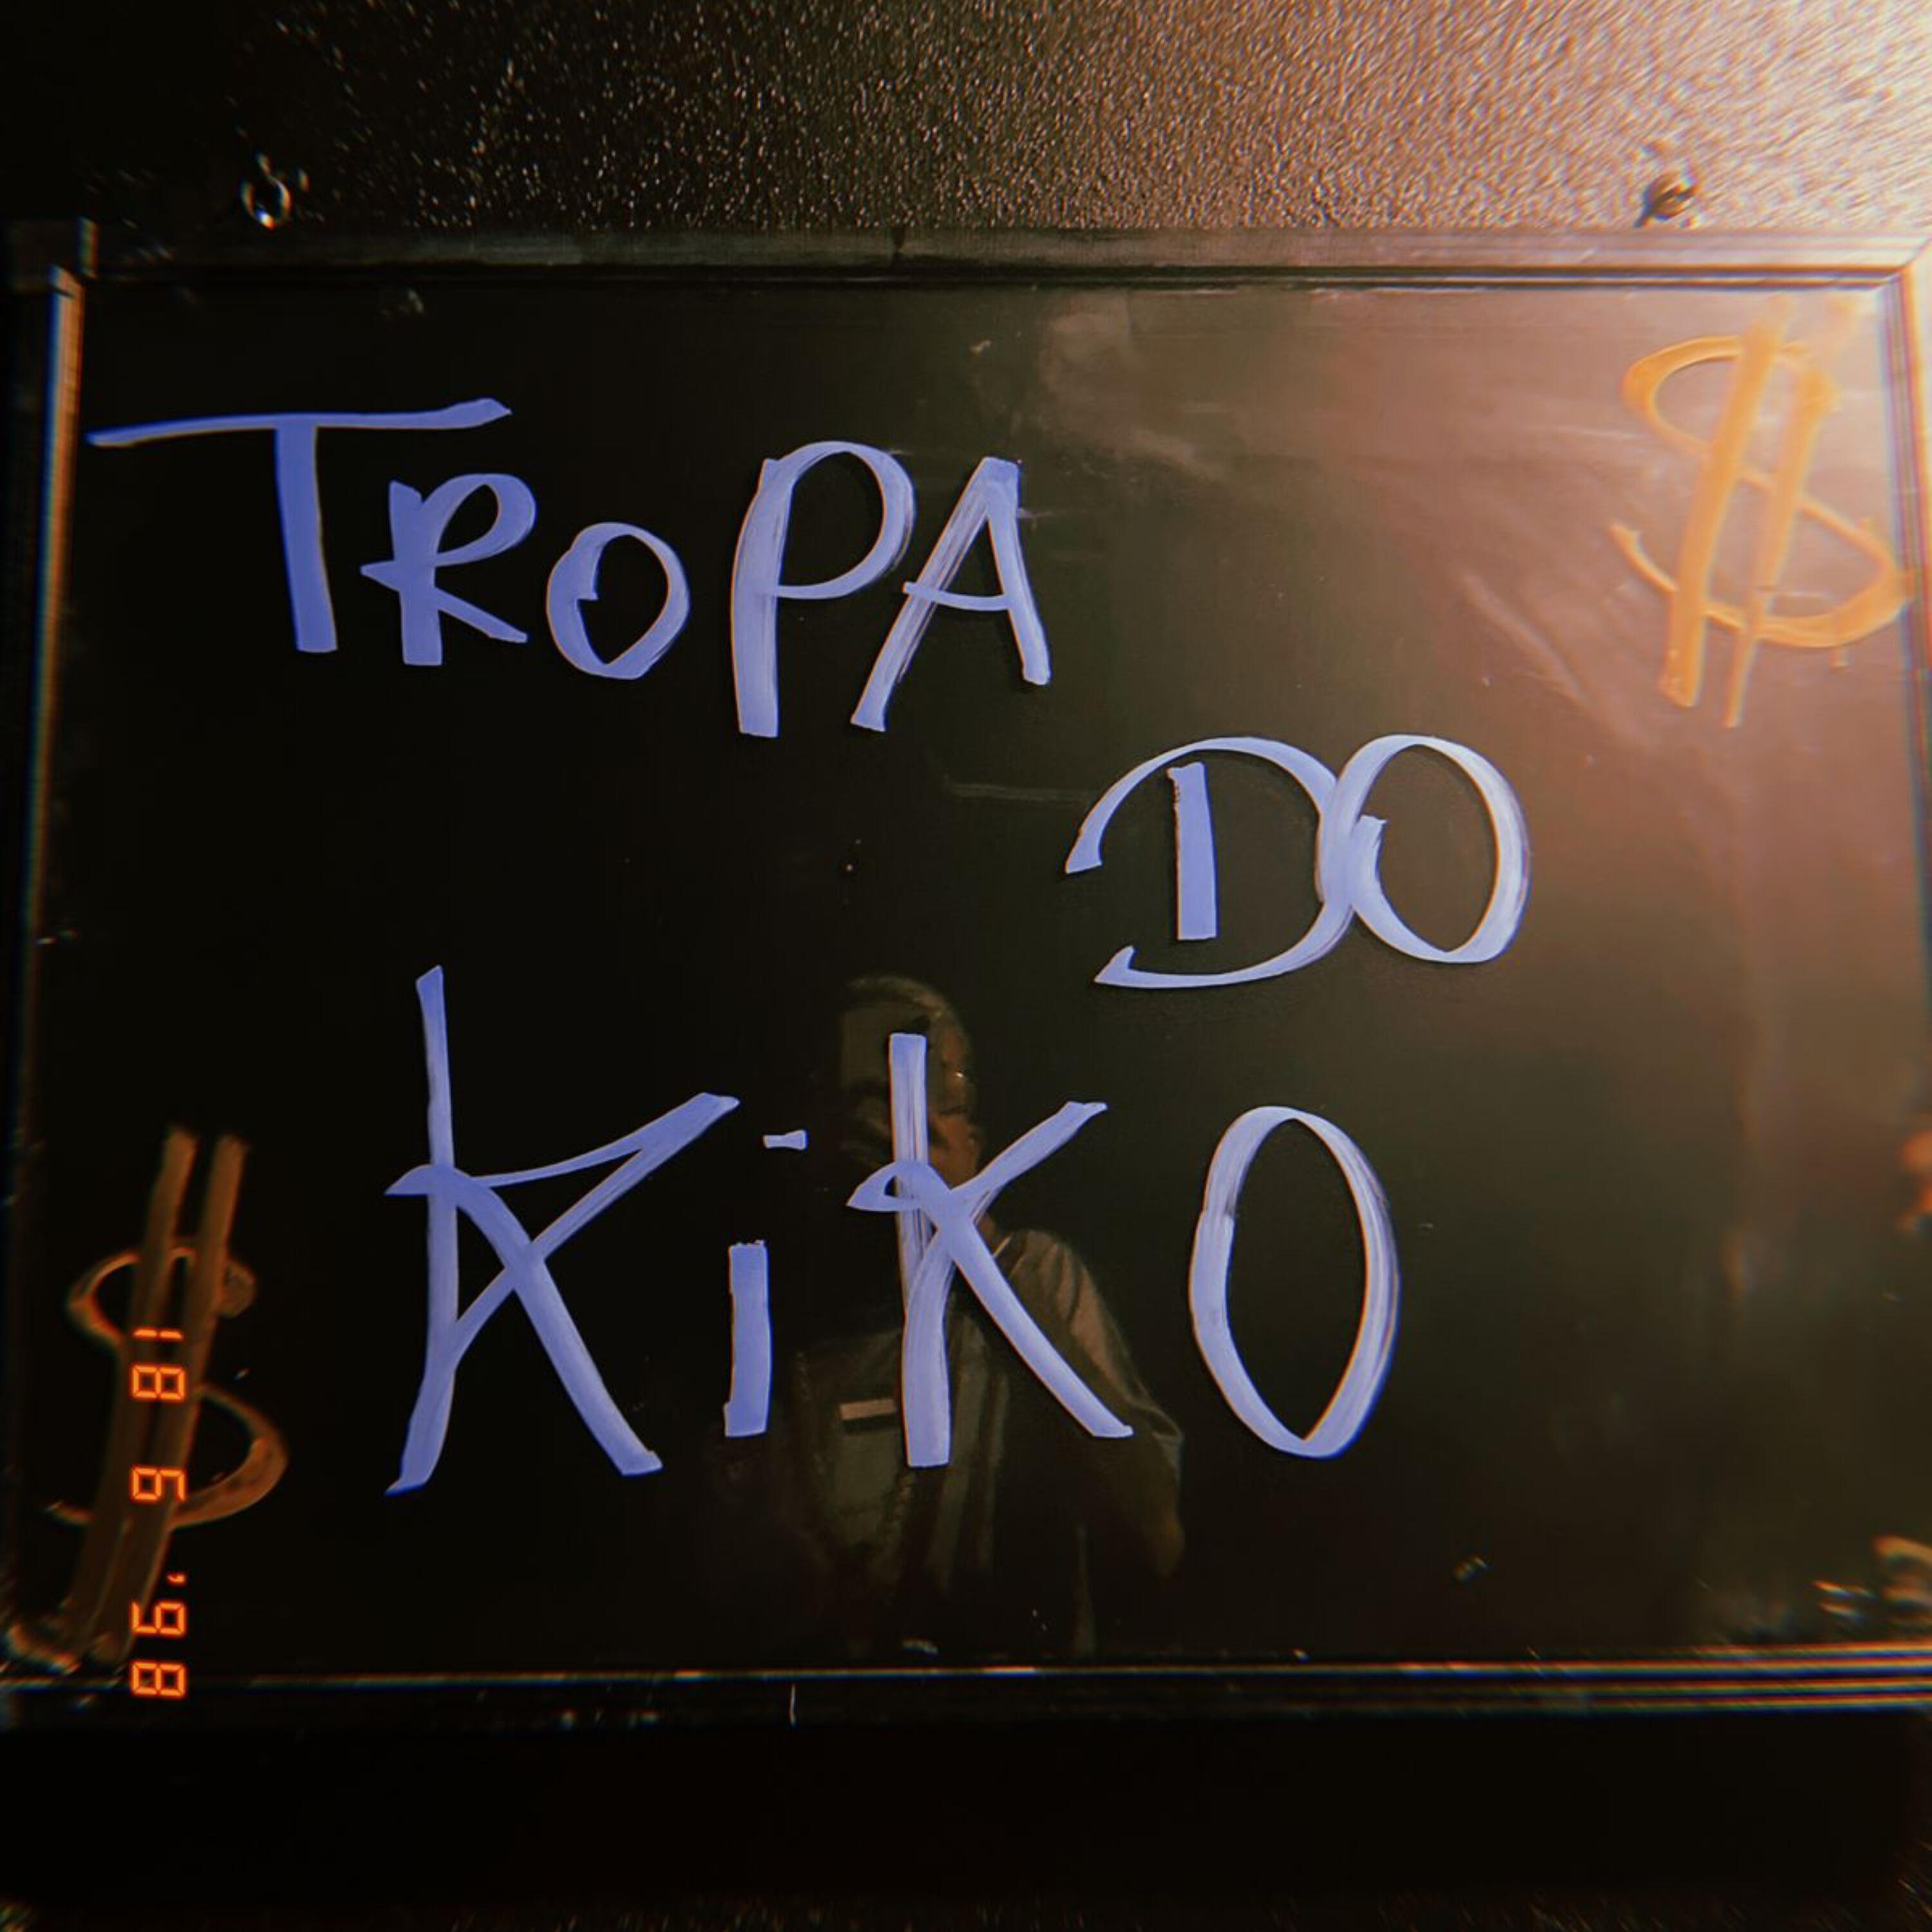 TROPA
DO
KiKO
$
$
18 6 '98